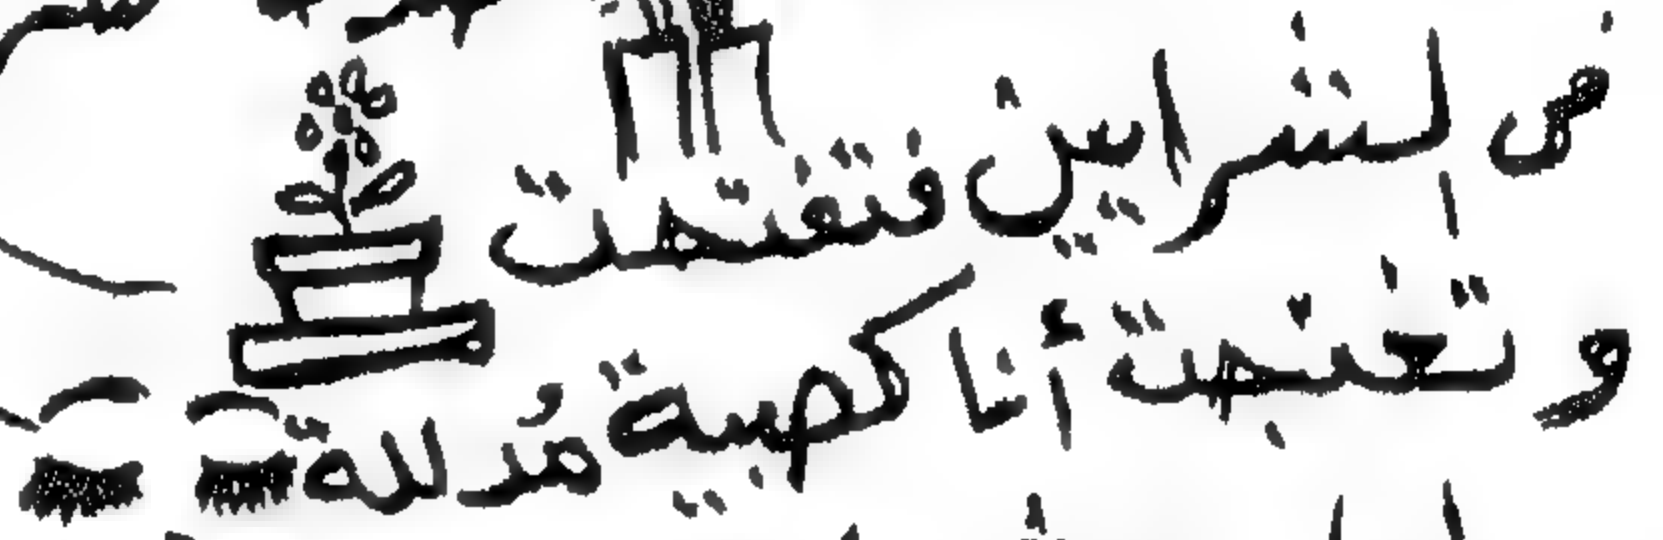 ض الشرايين فتفتحت
و تغنجت أنا كصبية مُدللة